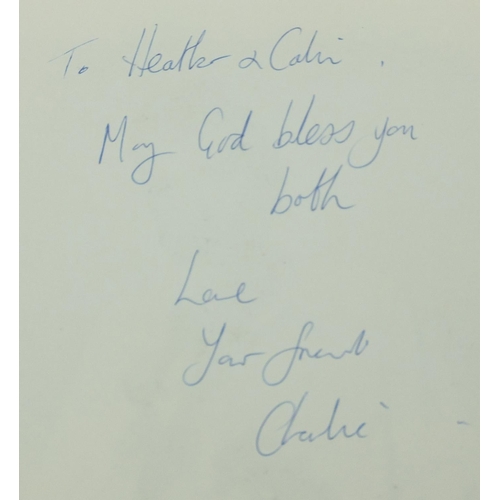 To Heather & Colin.
May God bless you
both
Love
Your friend
Charlie